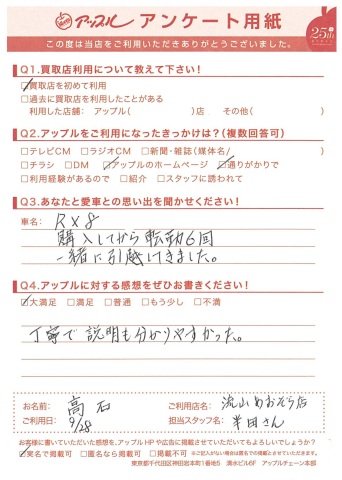 アップル アンケート用紙
25th
この度は当店をご利用いただきありがとうございました。
Q1.買取店利用について教えて下さい!
☑買取店を初めて利用
□過去に買取店を利用したことがある
利用した店舗: アップル( )店 その他( )
Q2.アップルをご利用になったきっかけは?(複数回答可)
□テレビCM □ラジオCM □新聞・雑誌(媒体名/ )
□チラシ □DM ☑アップルのホームページ ☑通りがかりで
□利用経験があるので □紹介 □スタッフに誘われて
Q3.あなたと愛車との思い出を聞かせください!
車名: RX8
購入してから転勤6回
一緒に引越してきました。
Q4.アップルに対する感想をぜひお書きください!
☑大満足 □満足 □普通 □もう少し □不満
丁寧で説明も分かりやすかった。
お名前: 高石 ご利用店名: 流山おおぞら店
ご利用日: 9/28 担当スタッフ名: 半田さん
お客様に書いていただいた感想を、アップルHPや広告に掲載させていただいてもよろしいでしょうか?
☑実名で掲載可 □匿名なら掲載可 □掲載不可 ※ご記入がない場合は匿名での掲載とさせていただきます。
東京都千代田区神田岩本町1番地5 清水ビル6F アップルチェーン本部